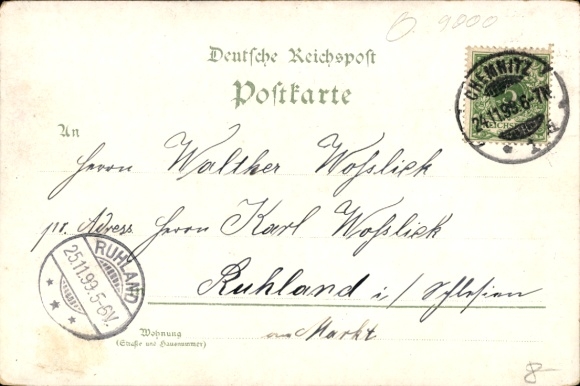 O. 9800
Deutsche Reichspost
Postkarte
CHEMNITZ
24.11.99.6-7N.
REICHSPOST
An
Herrn Walther Woslick
pr. Adress Herrn Karl Woslick
RUHLAND
25.11.99.5-6V.
Ruhland i/ Schlesien
am Markt
Wohnung
(Straße und Hausnummer)
8-